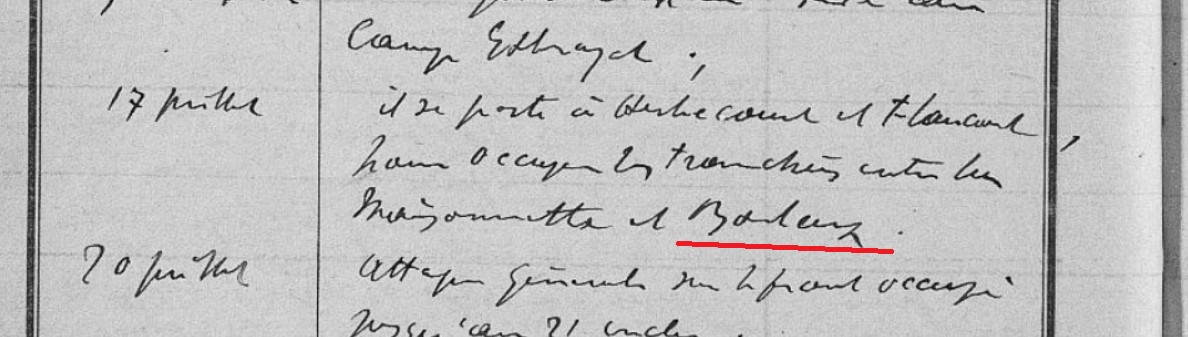 Camp Estrayol ;
17 juillet il se porte à Herbecourt et Flaucourt,
pour occuper les tranchées entre les
Maisonnette et Barleux.
20 juillet Attaque générale sur le front occupé
jusqu'au 21 inclus.